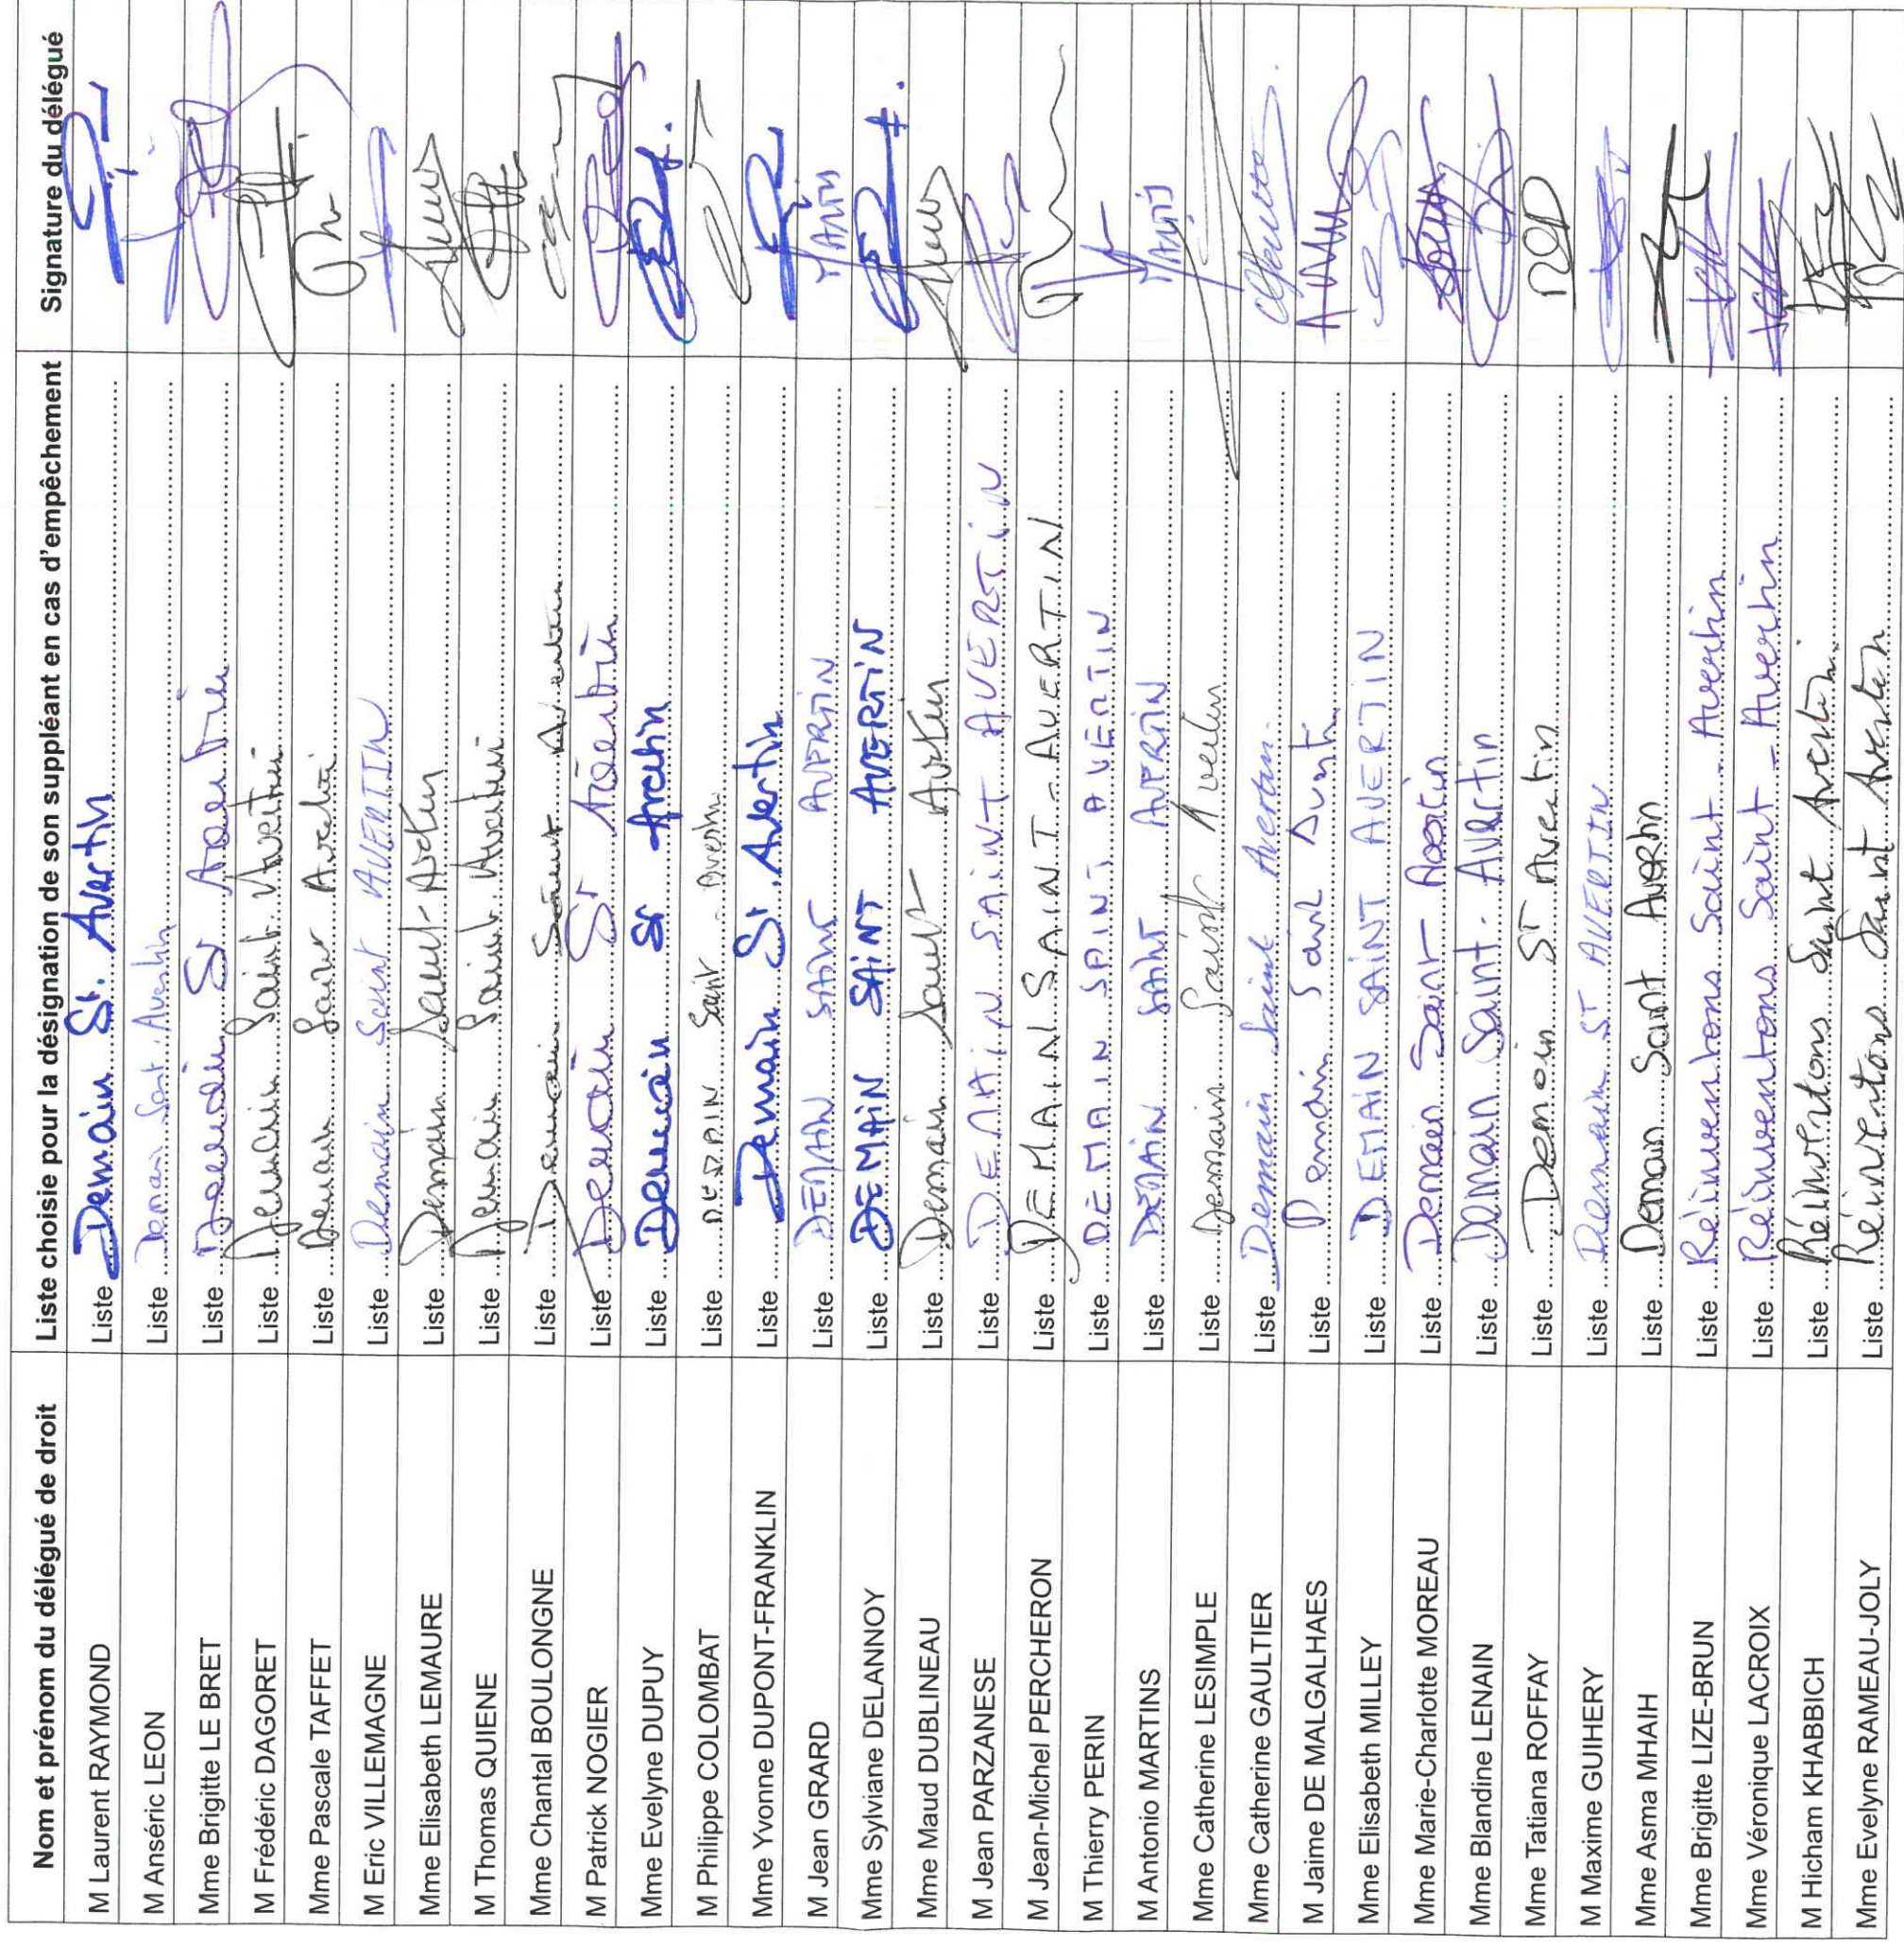 Nom et prénom du délégué de droit Liste choisie pour la désignation de son suppléant en cas d'empêchement Signature du délégué
M Laurent RAYMOND Liste Demain St. Avertin
M Anséric LEON Liste Demain Saint Avertin
Mme Brigitte LE BRET Liste Demain St Avertin
M Frédéric DAGORET Liste Demain Saint Avertin
Mme Pascale TAFFET Liste Demain Saint Avertin
M Eric VILLEMAGNE Liste Demain Saint AVERTIN
Mme Elisabeth LEMAURE Liste Demain Saint-Avertin
M Thomas QUIENE Liste Demain Saint Avertin
Mme Chantal BOULONGNE Liste Demain Saint Avertin
M Patrick NOGIER Liste Demain St Avertin
Mme Evelyne DUPUY Liste Demain St Avertin
M Philippe COLOMBAT Liste DEMAIN Saint-Avertin
Mme Yvonne DUPONT-FRANKLIN Liste Demain St. Avertin
M Jean GRARD Liste DEMAIN SAINT AVERTIN
Mme Sylviane DELANNOY Liste DEMAIN SAINT AVERTIN
Mme Maud DUBLINEAU Liste Demain Saint Avertin
M Jean PARZANESE Liste DEMAIN SAINT AVERTIN
M Jean-Michel PERCHERON Liste DEMAIN SAINT-AVERTIN
M Thierry PERIN Liste DEMAIN SAINT AVERTIN
M Antonio MARTINS Liste DEMAIN SAINT AVERTIN
Mme Catherine LESIMPLE Liste Demain Saint Avertin
Mme Catherine GAULTIER Liste Demain Saint Avertin.
M Jaime DE MALGALHAES Liste Demain Saint Avertin
Mme Elisabeth MILLEY Liste DEMAIN SAINT AVERTIN
Mme Marie-Charlotte MOREAU Liste Demain Saint Avertin
Mme Blandine LENAIN Liste Demain Saint. Avertin
Mme Tatiana ROFFAY Liste Demain ST Avertin
M Maxime GUIHERY Liste Demain ST AVERTIN
Mme Asma MHAIH Liste Demain Saint Avertin
Mme Brigitte LIZE-BRUN Liste Réinventons Saint-Avertin
Mme Véronique LACROIX Liste Réinventons Saint-Avertin
M Hicham KHABBICH Liste Réinventons Saint Avertin
Mme Evelyne RAMEAU-JOLY Liste Réinventons Saint Avertin